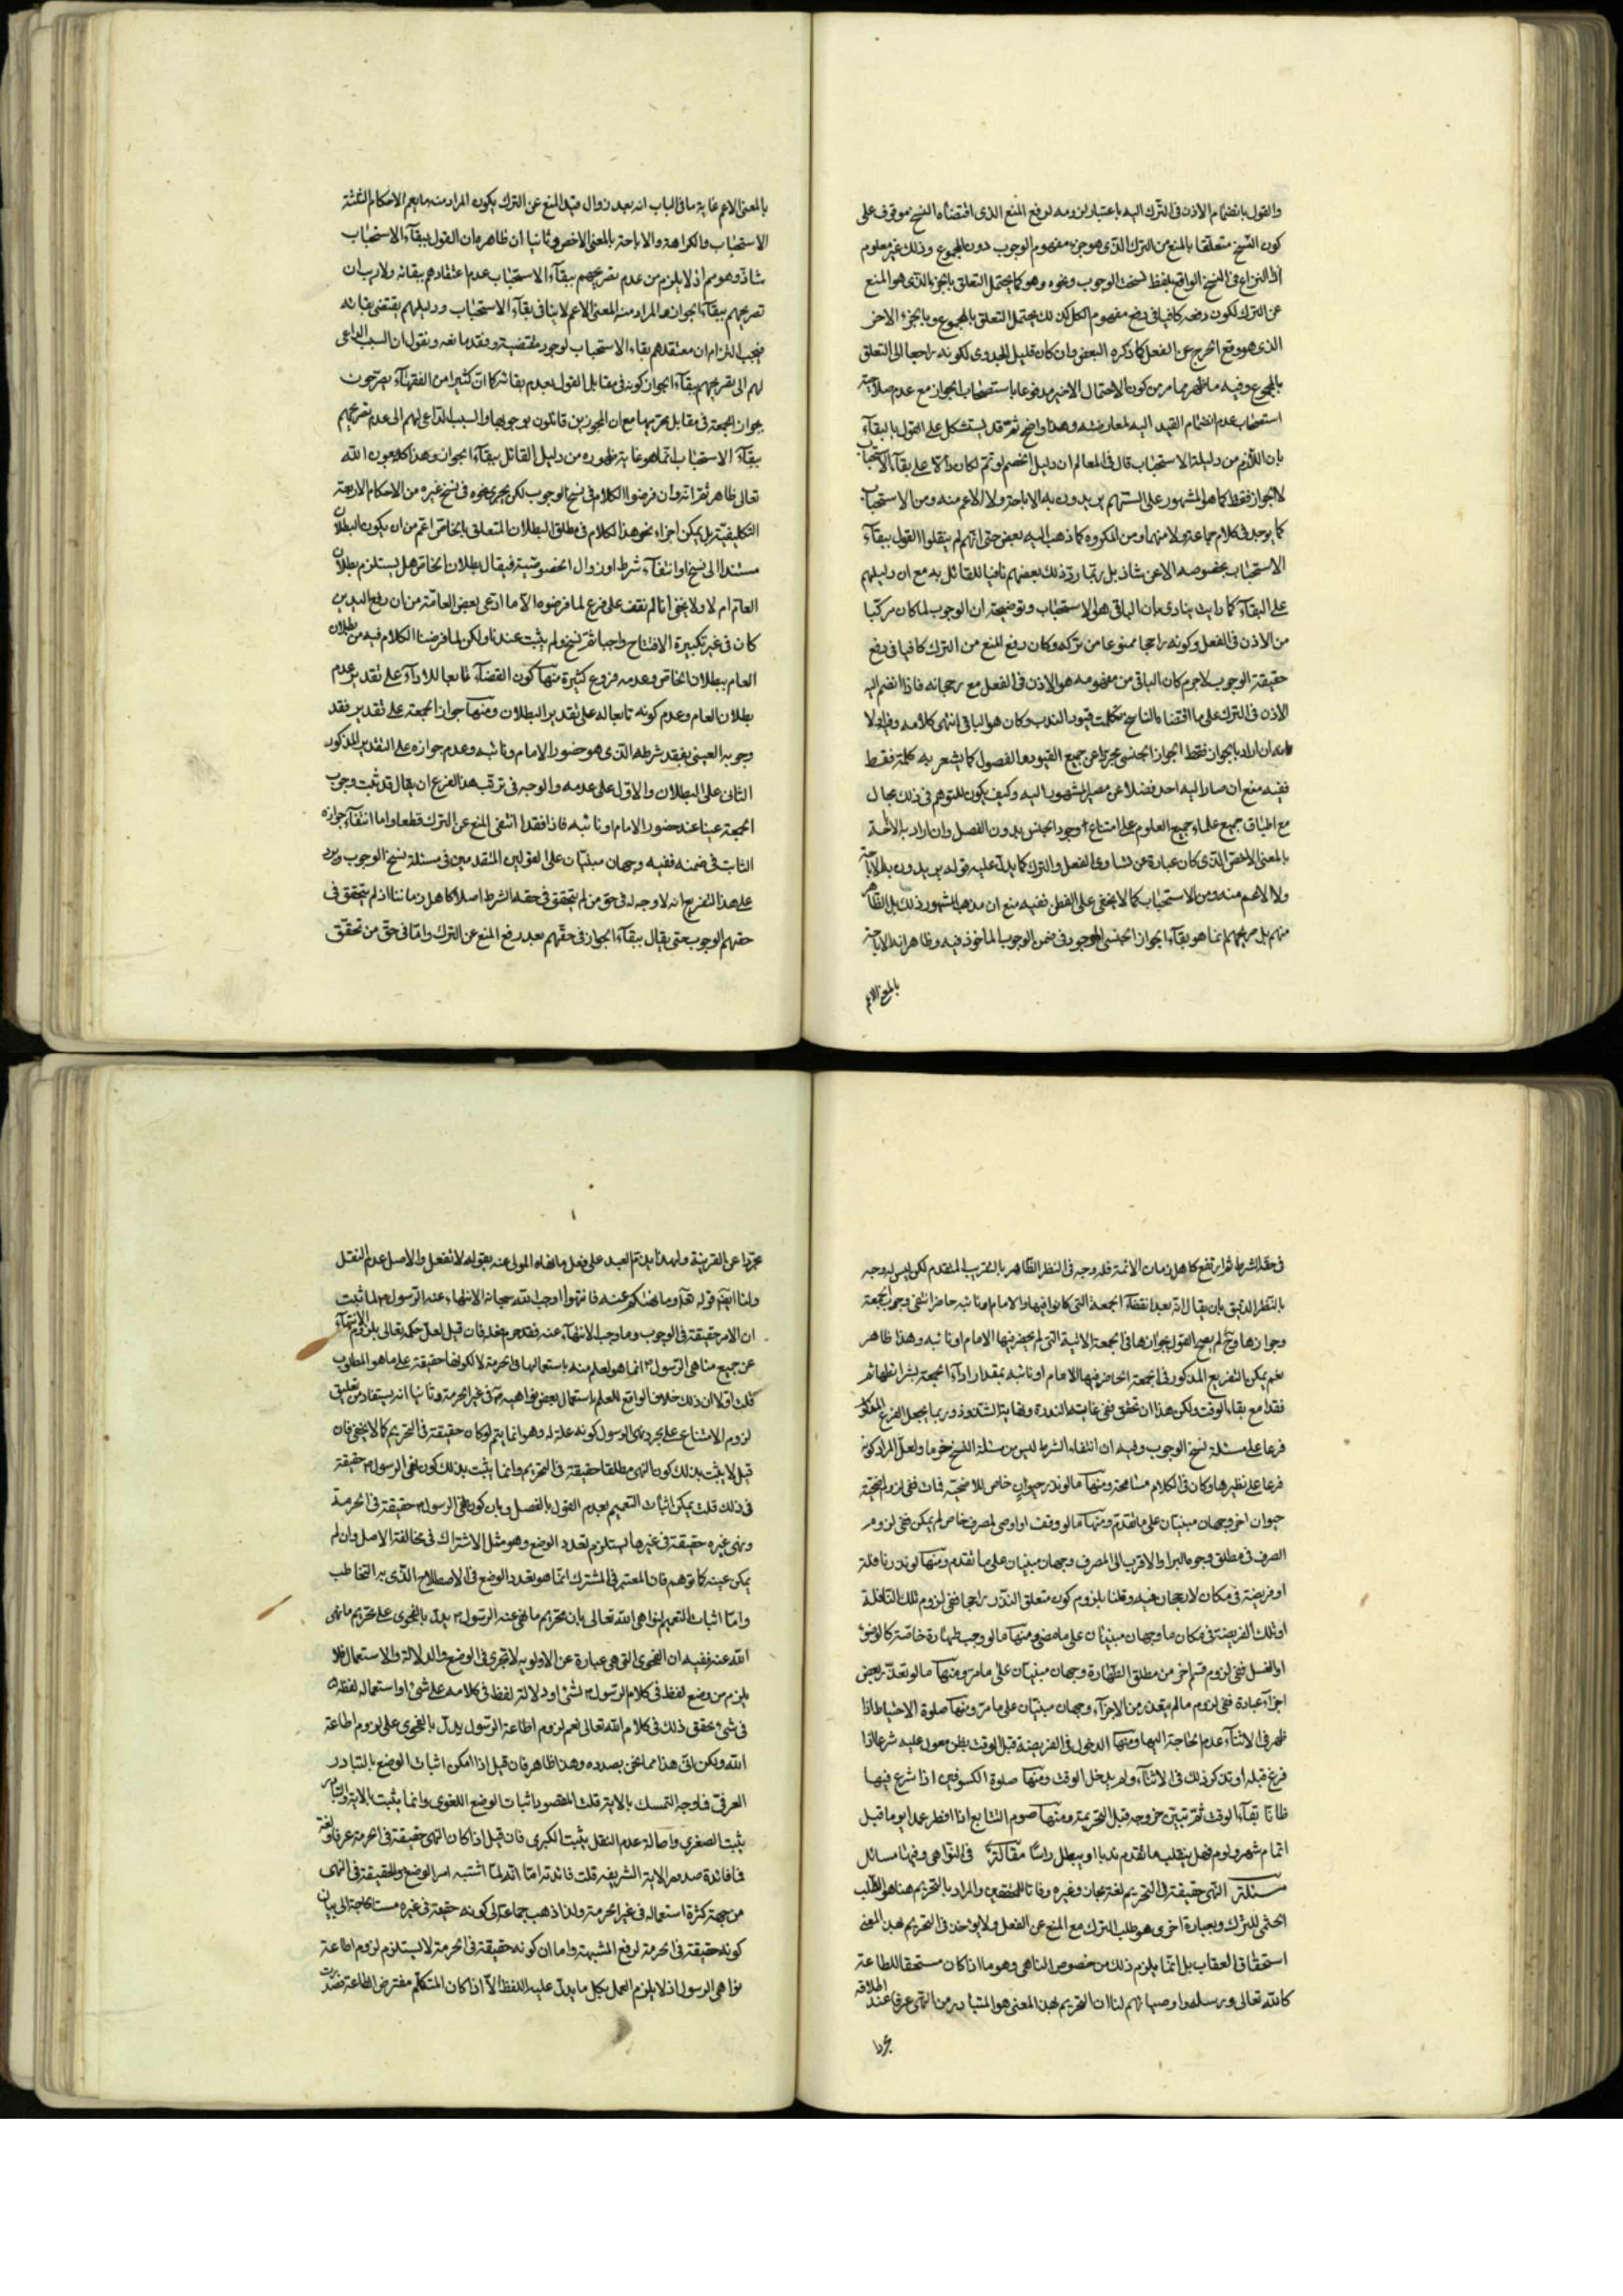 والقول بانضمام الاذن فى الترك اليه باعتبار لزومه لرفع المنع الذى اقتضاه النسخ موقوف على
كون النسخ متعلقا بالمنع من الترك الذى هو جزء مفهوم الوجوب دون المجموع وذلك غير معلوم
اذ النزاع فى النسخ الواقع بلفظ نسخت الوجوب ونحوه وهو كما يحتمل التعلق بالجزء الذى هو المنع
عن الترك لكون رفعه كافيا فى رفع مفهوم الكل كذلك يحتمل التعلق بالمجموع وبالجزء الاخر
الذى هو رفع الحرج عن الفعل كما ذكره البعض وان كان قليل الجدوى لكونه راجعا الى التعلق
بالمجموع وفيه ما ظهر مما مر من كون الاحتمال الاخير مدفوعا باستصحاب الجواز مع عدم صلاحية
استصحاب عدم انضمام القيد اليه لمعارضته وهذا واضح ثم قد يستشكل على القول بالبقاء
بان اللازم من دليله الاستحباب قال فى المعالم ان دليل الخصم لو تم لكان دالا على بقاء الاستحباب
لا الجواز فقط كما هو المشهور على السنتهم يريدون به الاباحة ولا الاعم منه ومن الاستحباب
كما يوجد فى كلام جماعة ولا منهما ومن المكروه كما ذهب اليه بعض حتى انهم لم ينقلوا القول ببقاء
الاستحباب بخصوصه الا عن شاذ بل ربما رد ذلك بعضهم نافيا للقائل به مع ان دليلهم
على البقاء كما رايت ينادى بان الباقى هو الاستحباب وتوضيحه ان الوجوب لما كان مركبا
من الاذن فى الفعل وكونه راجحا ممنوعا من تركه وكان رفع المنع من الترك كافيا فى رفع
حقيقة الوجوب لا جرم كان الباقى من مفهومه هو الاذن فى الفعل مع رجحانه فاذا انضم اليه
الاذن فى الترك على ما اقتضاه الناسخ تكملت قيود الندب وكان هو الباقى انتهى كلامه وفيه اولا
انه ان اراد بالجواز فقط الجواز الجنسى مجردا عن جميع القيود والفصول كما يشعر به كلمة فقط
ففيه منع ان صار اليه احد فضلا عن مصير المشهور اليه وكيف يكون للتوهم فى ذلك مجال
مع اطباق جميع علماء جميع العلوم على امتناع وجود الجنس بدون الفصل وان اراد به الاباحة
بالمعنى الاخص الذى كان عبارة عن تساوى الفعل والترك كما يدل عليه قوله يريدون به الاباحة
ولا الاعم منه ومن الاستحباب كما لا يخفى على الفطن ففيه منع ان مذهب المشهور ذلك بل الظاهر
منهم بل صريحهم انما هو بقاء الجواز الجنسى الموجود فى ضمن الوجوب الماخوذ فيه وظاهر انه الاباحة
بالمعنى الاعم
بالمعنى الاعم غاية ما فى الباب انه بعد زوال قيد المنع عن الترك يكون المراد منه ما يعم الاحكام الثلثة
الاستحباب والكراهة والاباحة بالمعنى الاخص وثانيا ان ظاهره ان القول ببقاء الاستحباب
شاذ وهو مم اذ لا يلزم من عدم تصريحهم ببقاء الاستحباب عدم اعتقادهم ببقائه ولا ريب ان
تصريحهم ببقاء الجواز المراد منه المعنى الاعم لا ينافى بقاء الاستحباب ودليلهم يقتضى بقائه
فيجب التزام ان معتقدهم بقاء الاستحباب لوجود مقتضيه وفقد مانعه ونقول ان السبب الداعى
لهم الى تصريحهم ببقاء الجواز كونه فى مقابل القول بعدم بقائه كما ان كثيرا من الفقهاء يصرحون
بجواز الجمعة فى مقابل تحريمها مع ان المجوزين قائلون بوجوبها والسبب الداعى لهم الى عدم تصريحهم
ببقاء الاستحباب انما هو غاية ظهوره من دليل القائل ببقاء الجواز وهذا كله بعون الله
تعالى ظاهر ثم انه وان فرضوا الكلام فى نسخ الوجوب لكن يجرى نحوه فى نسخ غيره من الاحكام الاربعة
التكليفية بل يمكن اجراء نحو هذا الكلام فى مطلق البطلان المتعلق بالخاص اعم من ان يكون البطلان
مستندا الى نسخ او انتفاء شرط او زوال الخصوصية فيقال بطلان الخاص هل يستلزم بطلان
العام ام لا ولا يخفى انا لم نقف على فرع لما فرضوه الا ما ادعى بعض العامة من ان رفع اليدين
كان فى غير تكبيرة الافتتاح واجبا ثم نسخ ولم يثبت عندنا ولكن لما فرضنا الكلام فيه من بطلان
العام ببطلان الخاص وعدمه فروع كثيرة منها كون القضاء تابعا للاداء على تقدير عدم
بطلان العام وعدم كونه تابعا له على تقدير البطلان ومنها جواز الجمعة على تقدير فقد
وجوبه العينى بفقد شرطه الذى هو حضور الامام ونائبه وعدم جوازه على التقدير المذكور
الثانى على البطلان والاول على عدمه والوجه فى ترتب هذا الفرع ان يقال قد ثبت وجوب
الجمعة عينا عند حضور الامام او نائبه فاذا فقدا انتفى المنع عن الترك قطعا واما انتفاء جوازه
الثابت فى ضمنه ففيه وجهان مبنيان على القولين المتقدمين فى مسئلة نسخ الوجوب ويرد
على هذا التفريع انه لا وجه له فى حق من لم يتحقق فى حقه الشرط اصلا كاهل زماننا اذ لم يتحقق فى
حقهم الوجوب حتى يقال ببقاء الجواز فى حقهم بعد رفع المنع عن الترك واما فى حق من تحقق
فى حقه الشرط ثم ارتفع كاهل زمان الائمة فله وجه فى النظر الظاهر بالتقريب المتقدم لكن ليس له وجه
بالنظر الدقيق بان يقال انه بعد انقضاء الجمعة التى كانوا فيها والامام او نائبه حاضرا انتفى وجوب الجمعة
وجوازها وح لم يصح القول بجوازها فى الجمعة الاتية التى لم يحضر فيها الامام او نائبه وهذا ظاهر
نعم يمكن التفريع المذكور فى الجمعة الحاضر فيها الامام او نائبه بمقدار اداء الجمعة بشرائطها ثم
فقدا مع بقاء الوقت ولكن هذا ان تحقق ففى غاية الندرة ونهاية الشذوذ وربما يجعل الفرع المذكور
فرعا على مسئلة نسخ الوجوب وفيه ان انتفاء الشرط ليس من مسئلة النسخ خوما ولعل المراد كونه
فرعا على نظيرها وكان فى الكلام مسامحة ومنها ما لو نذر حيوان خاص للاضحية فمات ففى لزوم تضحية
حيوان اخر وجهان مبنيان على ما تقدم ومنها ما لو وقف او اوصى لمصرف خاص لم يمكن ففى لزوم
الصرف فى مطلق وجوه البر او الاقرب الى المصرف وجهان مبنيان على ما تقدم ومنها لو نذر نافلة
او فريضة فى مكان لا رجحان فيه وقلنا بلزوم كون متعلق النذر راجحا ففى لزوم تلك النافلة
او تلك الفريضة فى مكان ما وجهان مبنيان على ما مضى ومنها ما لو وجب طهارة خاصة كالوضوء
او الغسل ففى لزوم قسم اخر من مطلق الطهارة وجهان مبنيان على ما مر ومنها ما لو تعذر بعض
اجزاء عبادة ففى لزوم ما لم يتعذر من الاجزاء وجهان مبنيان على ما مر ومنها صلوة الاحتياط اذا
ظهر فى الاثناء عدم الحاجة اليها ومنها الدخول فى الفريضة قبل الوقت بظن معول عليه شرعا اذا
فرغ قبله او تذكر ذلك فى الاثناء ولم يدخل الوقت ومنها صلوة الكسوفين اذا شرع فيها
ظانا بقاء الوقت ثم تبين خروجه قبل التحريمة ومنها صوم التتابع اذا افطر عمدا يوما قبل
اتمام شهر ويوم فهل ينقلب ما تقدم ندبا او يبطل راسا مقالة فى النواهى وفيها مسائل
مسئلة النهى حقيقة فى التحريم لغة مجاز وغيره وفاقا للمحققين والمراد بالتحريم هنا هو الطلب
الحتمى للترك وبعبارة اخرى هو طلب الترك مع المنع عن الفعل ولا يؤخذ فى التحريم بهذا المعنى
استحقاق العقاب بل انما يلزم ذلك من خصوص الناهى وهو ما اذا كان مستحقا للطاعة
كالله تعالى ورسله واوصيائهم لنا ان التحريم بهذا المعنى هو المتبادر من النهى عرفا عند اطلاقه
مجردا
مجردا عن القرينة ولهذا يذم العبد على فعل ما نهاه المولى عنه بقوله لا تفعل والاصل عدم النقل
ولنا ايضا قوله تعالى وما نهيكم عنه فانتهوا اوجب الله سبحانه الانتهاء عنه الرسول لما ثبت
ان الامر حقيقة فى الوجوب وما وجب الانتهاء عنه فقد حرم فعله فان قيل لعل حكمه تعالى بلزوم الانتهاء
عن جميع مناهى الرسول انما هو لعلم منه باستعمالها فى الحرمة لا لكونها حقيقة على ما هو المطلوب
قلت اولا ان ذلك خلاف الواقع للعلم باستعمال بعض نواهيه فى غير الحرمة وثانيا انه يستفاد من تعليق
لزوم الامتناع على مجرد نهى الرسول كونه علة له وهو انما يتم لو كان حقيقة فى التحريم كما لا يخفى فان
قيل لا يثبت بذلك كون النهى مطلقا حقيقة فى التحريم وانما يثبت بذلك كون نهى الرسول حقيقة
فى ذلك قلت يمكن اثبات التعميم بعدم القول بالفصل وبان كون نهى الرسول حقيقة فى الحرمة
ونهى غيره حقيقة فى غيرها يستلزم تعدد الوضع وهو مثل الاشتراك فى مخالفة الاصل وان لم
يكن عينه كما توهم فان المعتبر فى المشترك انما هو تعدد الوضع فى الاصطلاح الذى به التخاطب
واما اثبات التعميم لنواهى الله تعالى بان تحريم ما نهى عنه الرسول يدل بالفحوى على تحريم ما نهى
الله عنه ففيه ان الفحوى التى هى عبارة عن الاولوية لا تجرى فى الوضع والدلالة والاستعمال فلا
يلزم من وضع لفظ فى كلام الرسول لشئ او دلالة لفظ فى كلامه على شئ او استعماله لفظه
فى شئ تحقق ذلك فى كلام الله تعالى نعم لزوم اطاعة الرسول يدل بالفحوى على لزوم اطاعة
الله ولكن اين هذا مما نحن بصدده وهذا ظاهر فان قيل اذا امكن اثبات الوضع بالتبادر
العرفى فما وجه التمسك بالاية قلت المقصود اثبات الوضع اللغوى وانما يثبت بالاية والتبادر
يثبت الصغرى واصالة عدم النقل يثبت الكبرى فان قيل اذا كان النهى حقيقة فى الحرمة عرفا ولغة
فما فائدة صدور الاية الشريفة قلت فائدته اما انه لما اشتبه امر الوضع والحقيقة فى النهى
من جهة كثرة استعماله فى غير الحرمة ولذا ذهب جماعة الى كونه حقيقة فى غيره مست الحاجة الى بيان
كونه حقيقة فى الحرمة لرفع الشبهة واما ان كونه حقيقة فى الحرمة لا يستلزم لزوم اطاعة
نواهى الرسول اذ لا يلزم العمل بكل ما يدل عليه اللفظ الا اذا كان المتكلم مفترض الطاعة